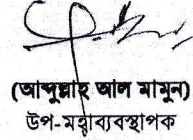 (আব্দুল্লাহ আল মামুন)
উপ-মহাব্যবস্থাপক